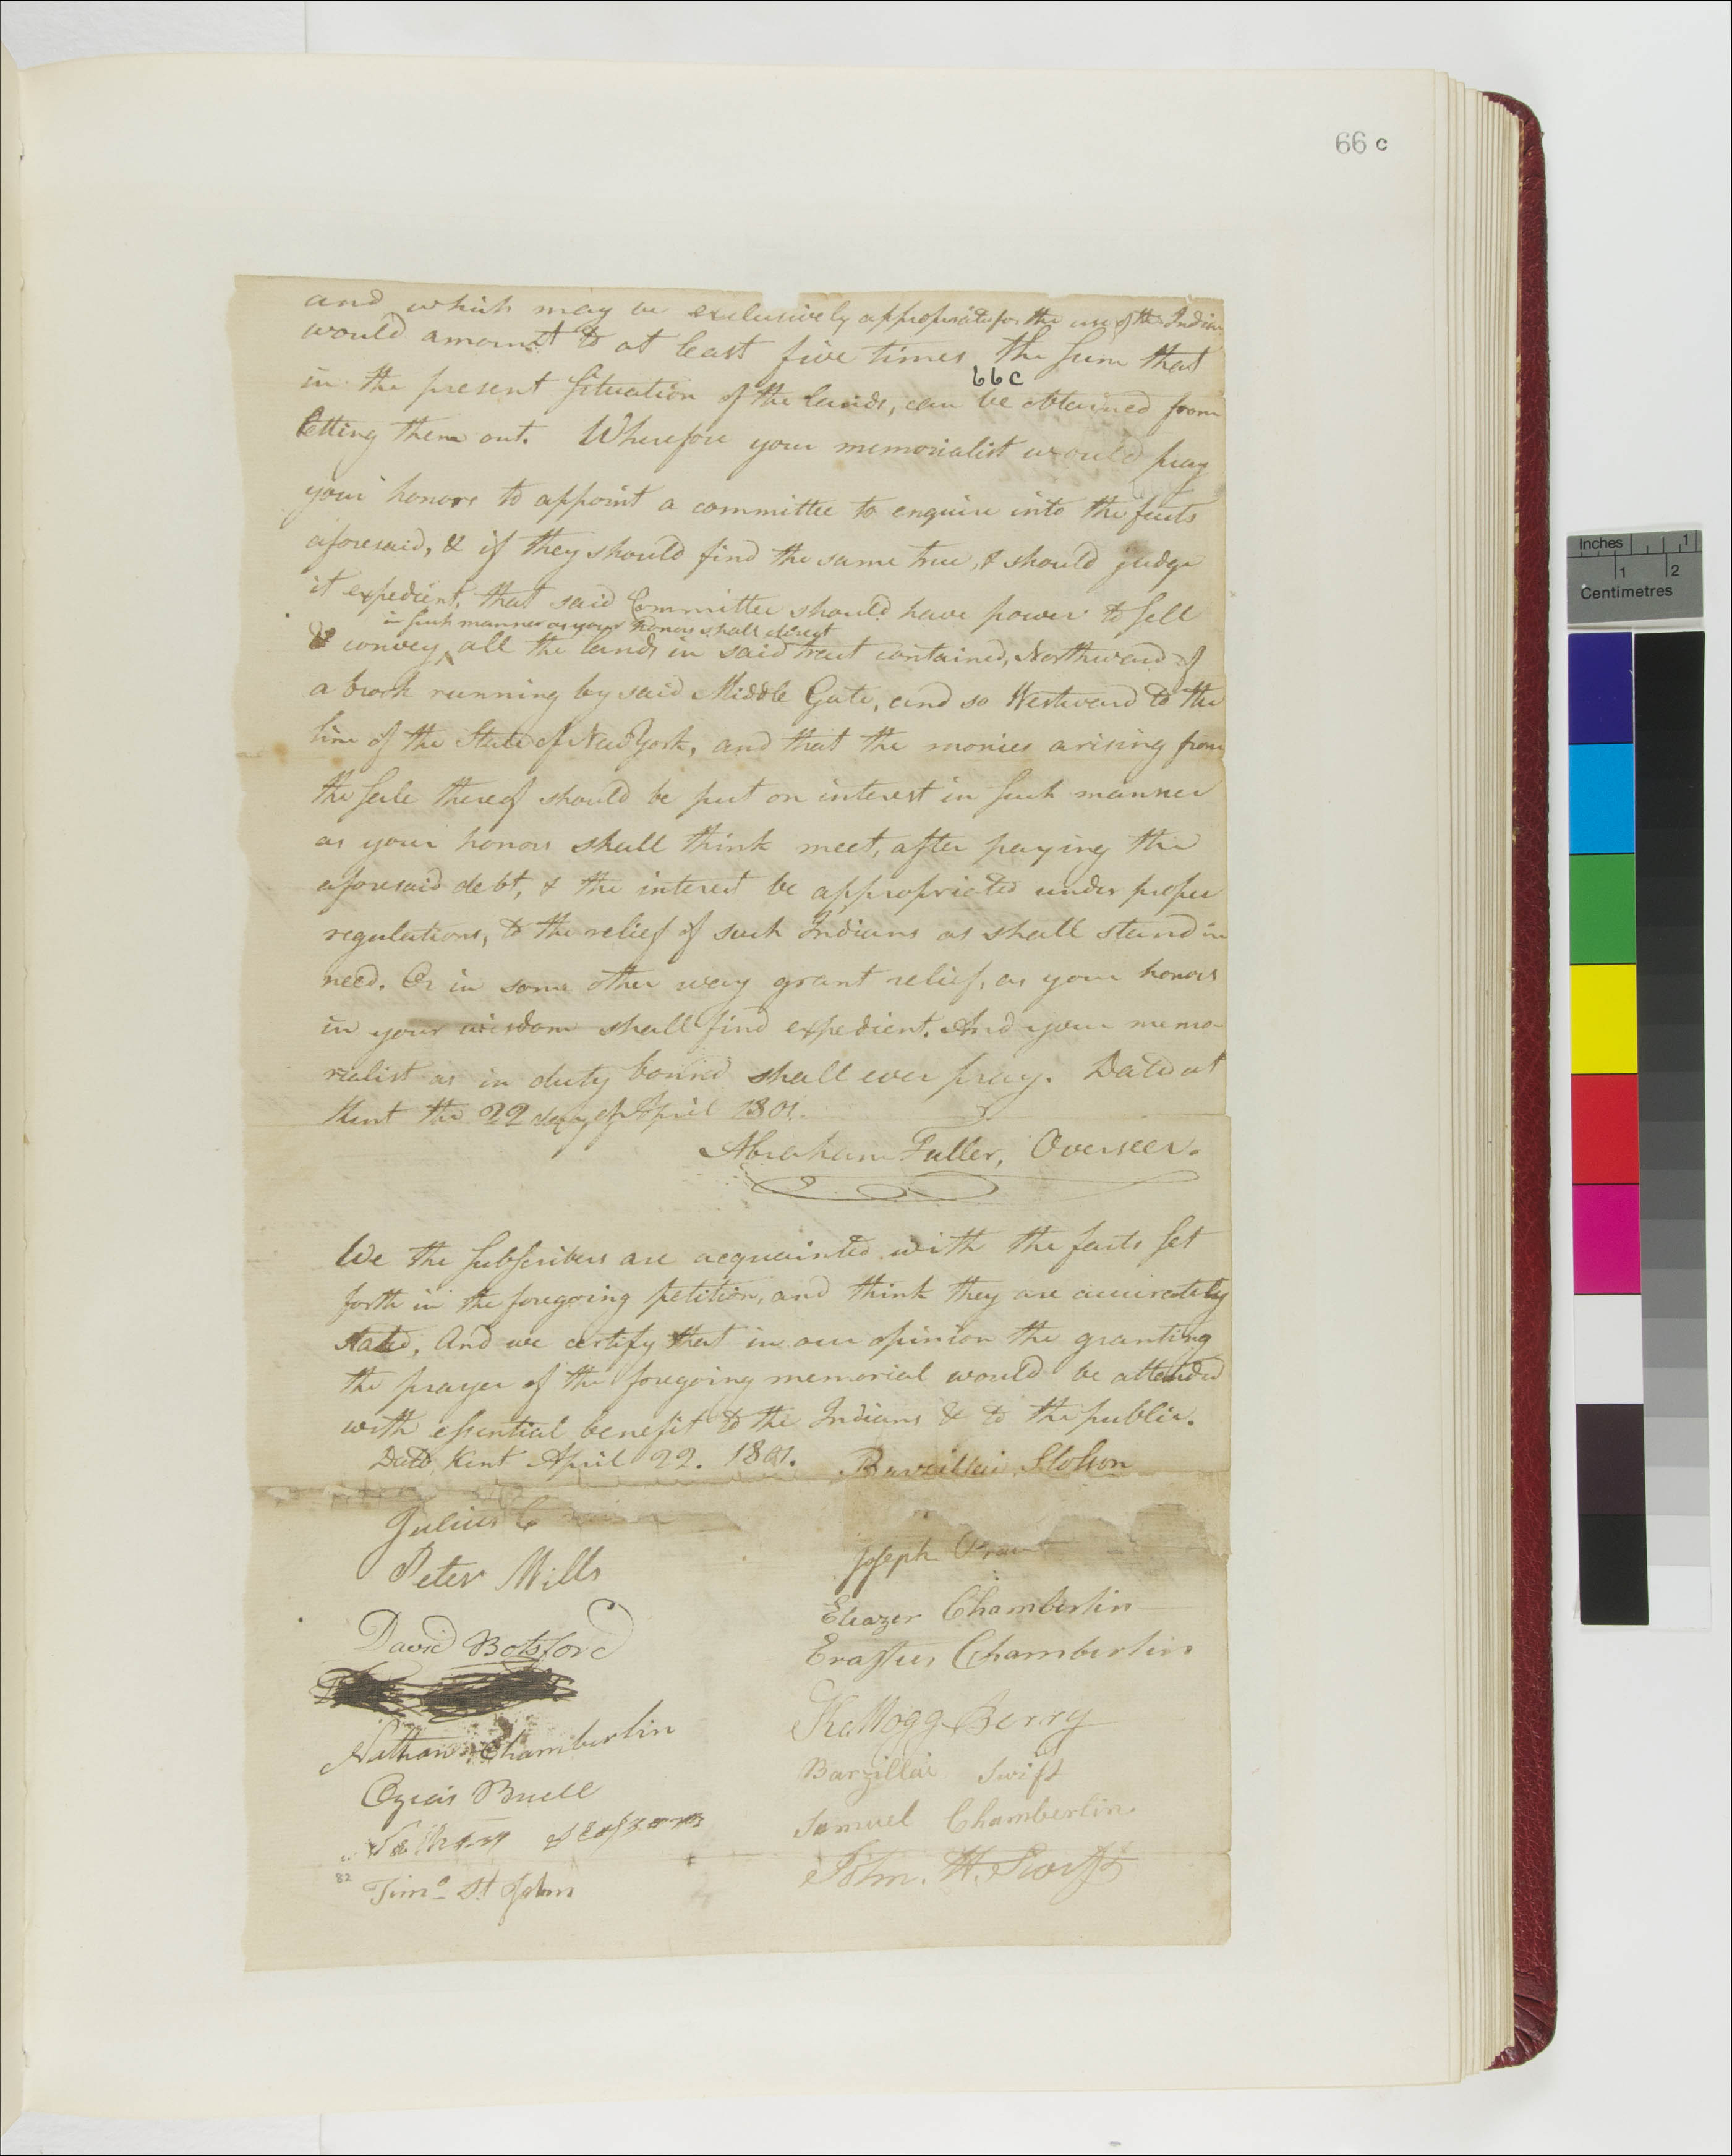 66 c
and which may be exclusively appropriated for the use of the Indians
would amount to at least five times the sum that
66c
in the present situation of the lands, can be obtained from
letting them out. Wherefore your memorialist would pray
your honors to appoint a committee to enquire into the facts
aforesaid, & if they should find the same true, & should judge
it expedient, that said Committee should have power to sell
in such manner as your honors shall direct
& convey ^ all the lands in said tract contained, Northward of
a brook running by said Middle Gate, and so Westward to the
line of the State of New York, and that the monies arising from
the sale thereof should be put on interest in such manner
as your honors shall think meet, after paying the
aforesaid debt, & the interest be appropriated under proper
regulations, to the relief of such Indians as shall stand in
need. Or in some other way grant relief, as your honors
in your wisdom shall find expedient. And your memo-
rialist as in duty bound shall ever pray. Dated at
Kent the 22 day of April 1801.
Abraham Fuller, Overseer.
We the subscribers are acquainted with the facts set
forth in the foregoing petition, and think they are accurately
stated, And we certify that in our opinion the granting
the prayer of the foregoing memorial would be attended
with essential benefit to the Indians & to the public.
Dated Kent April 22. 1801. Barzillai Slosson
Julius C
Joseph
Peter Mills
Eleazer Chamberlin
David Botsford
Erastus Chamberlin
Kellogg Berry
Nathan Chamberlin
Barzillai Swift
Ozias Buell
Samuel Chamberlin
John. H. Swift
82
Timo St John
Inches 1
1 2
Centimetres